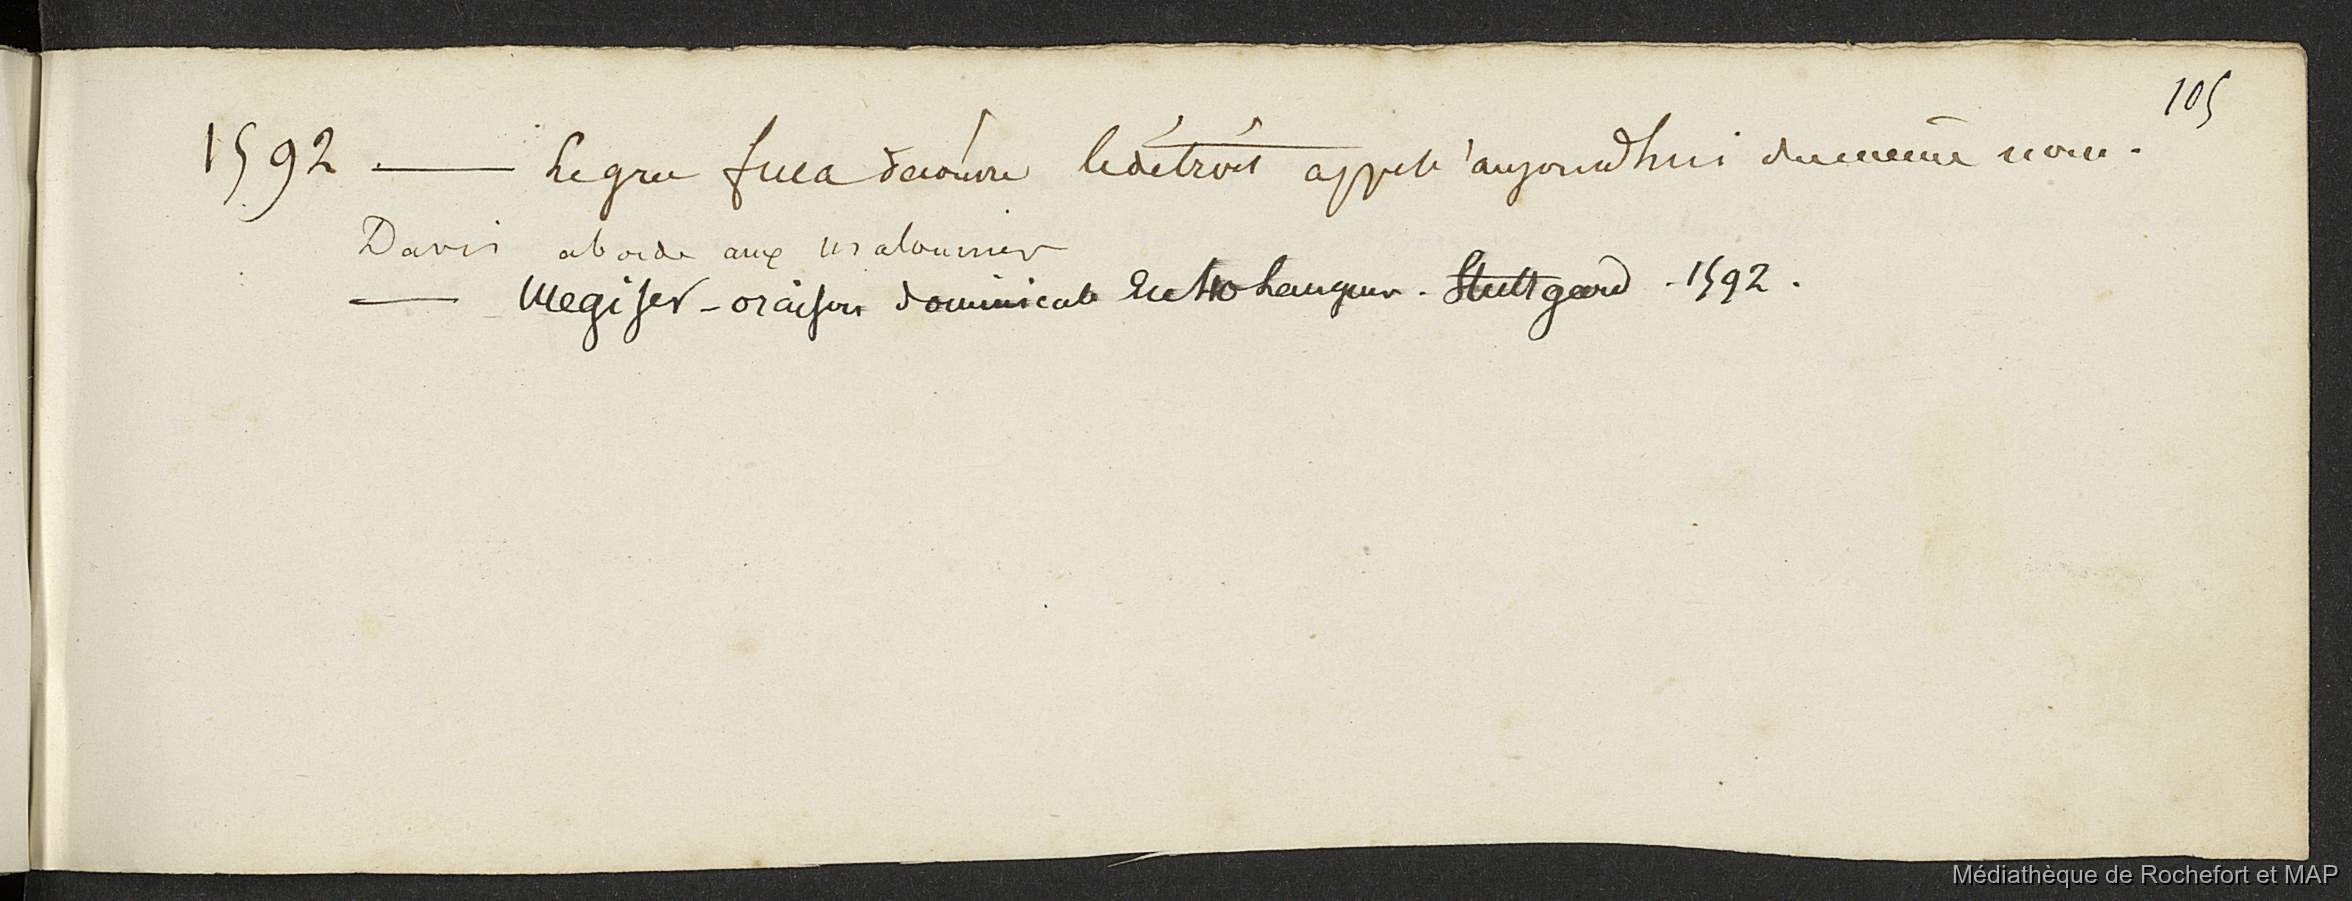 105
1592 — Le grec fuca découvre le détroit appelé aujourdhui du même nom.
Davis aborde aux malouines
— Megiser - oraison dominicale en 40 langues. Stuttgard - 1592.
Médiathèque de Rochefort et MAP